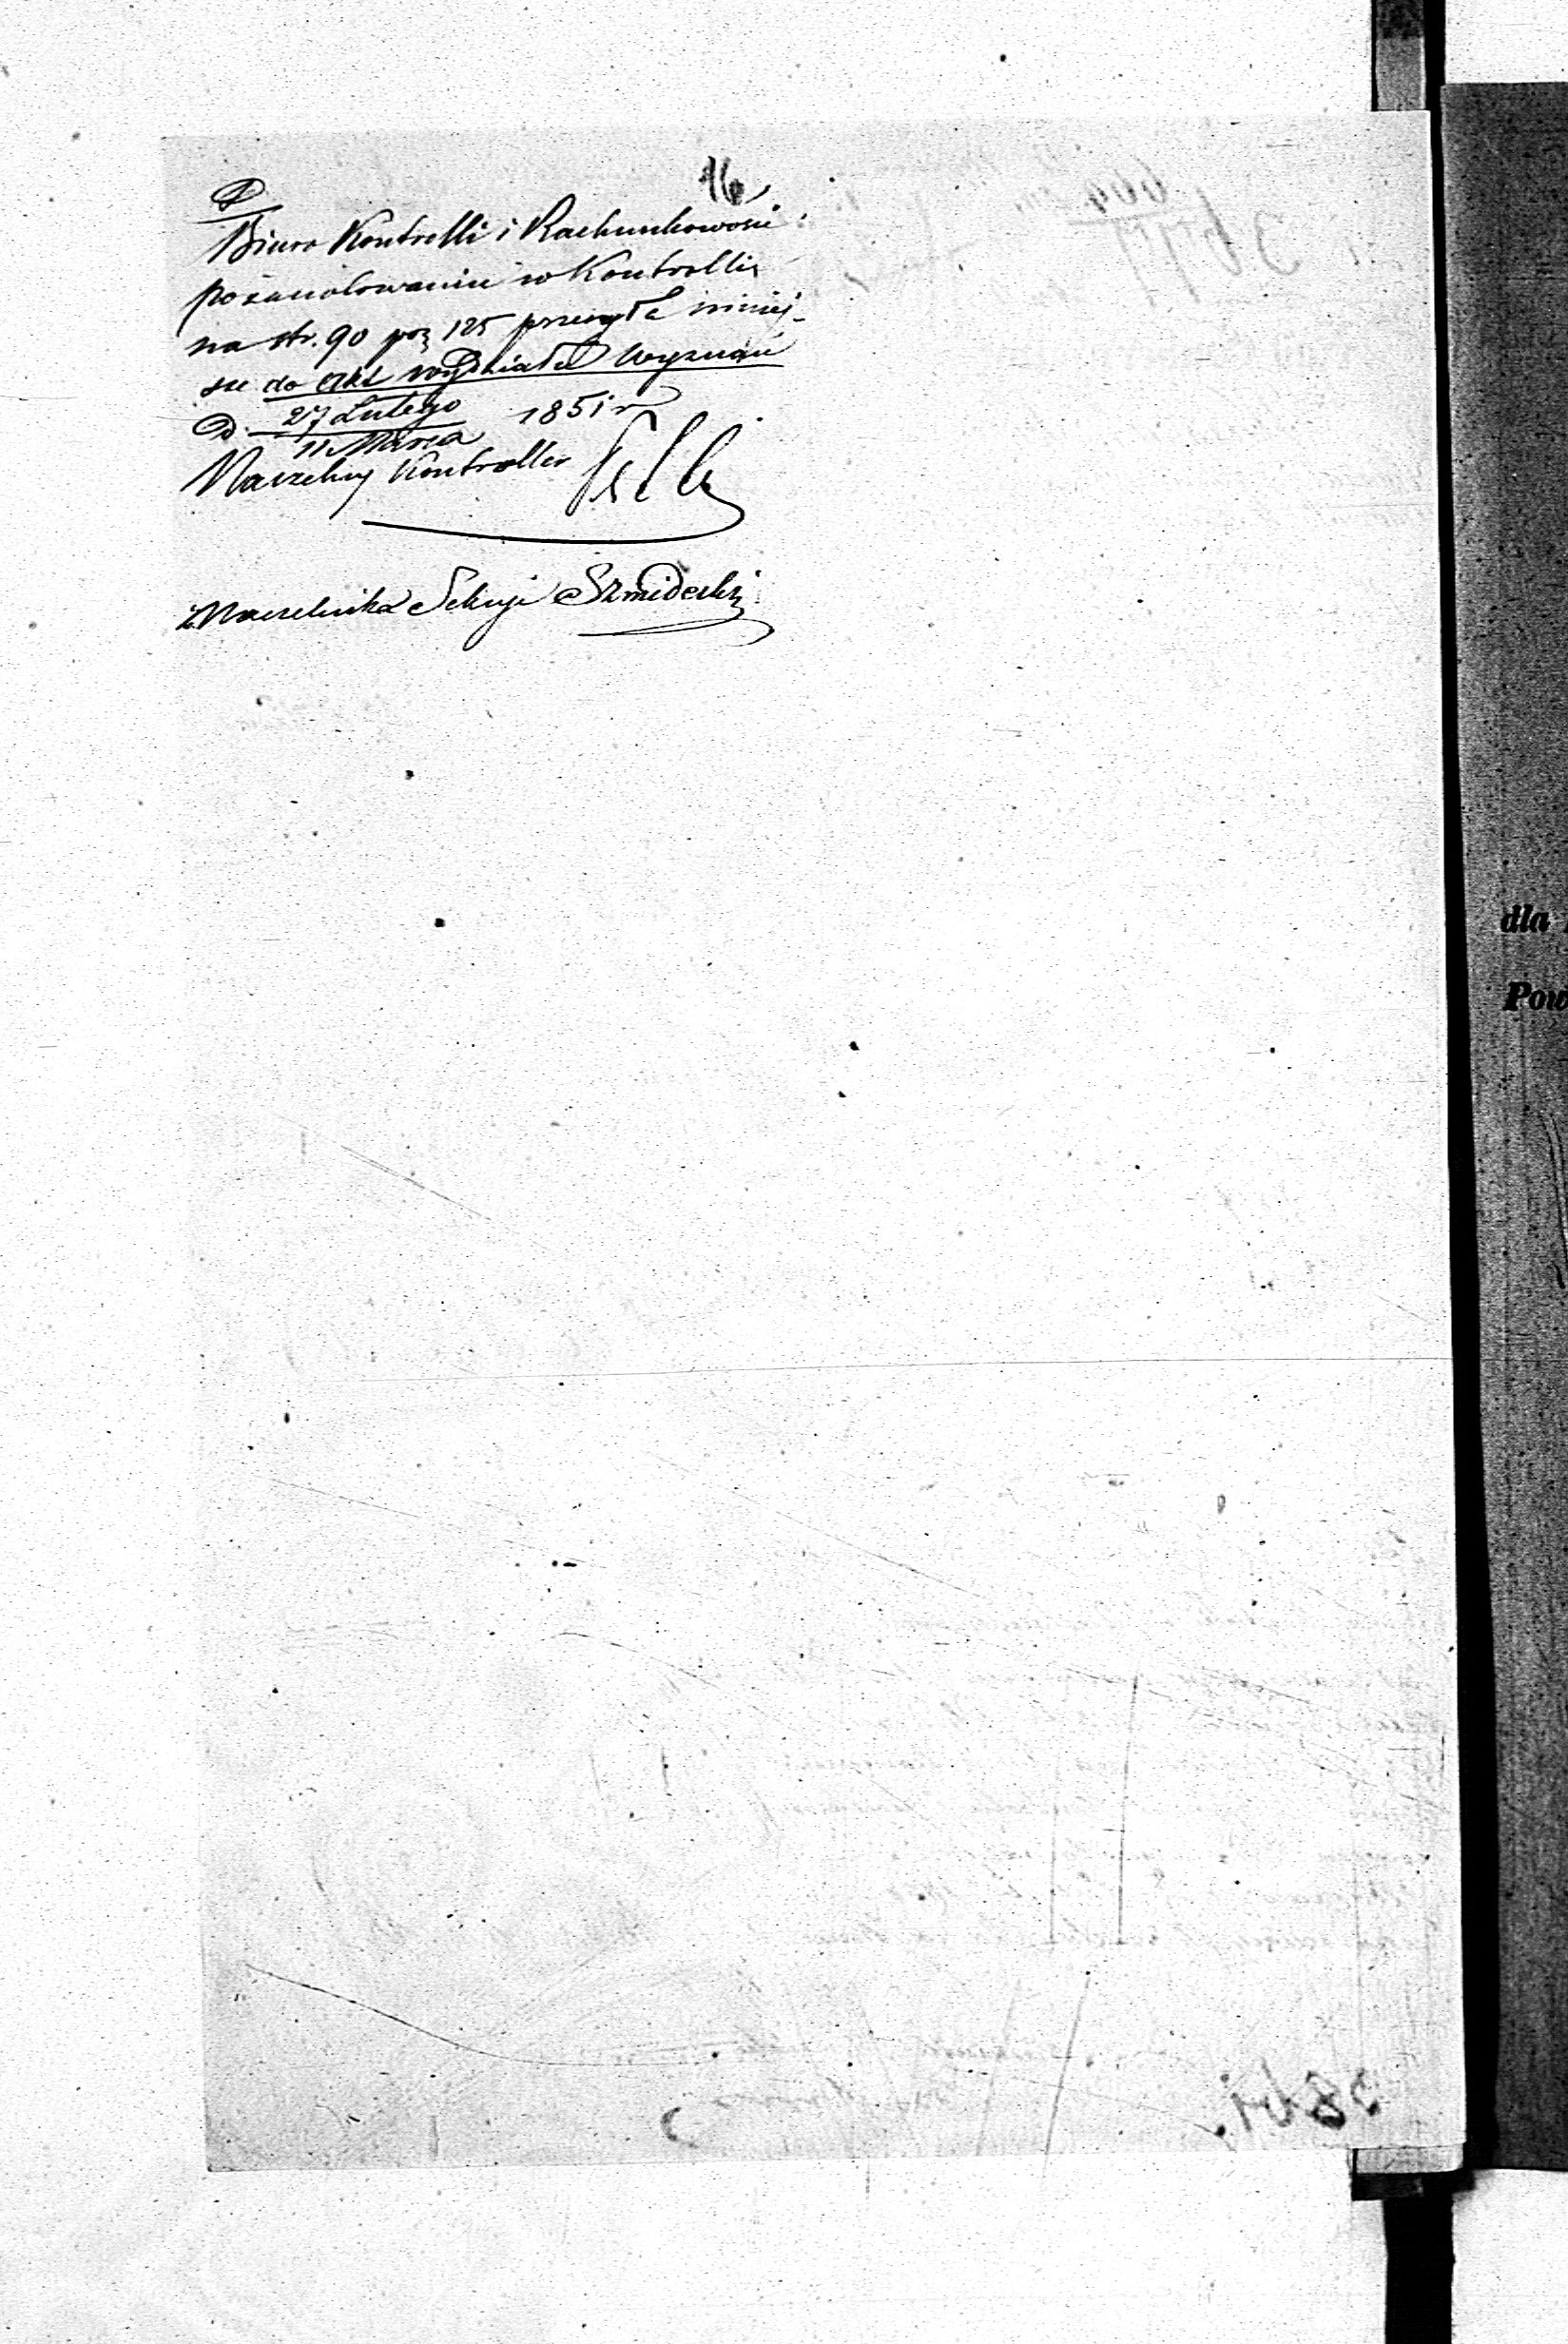 16
Biuro Kontrolli i Rachunkowości
po zanotowaniu w Kontrolli
na str. 90 poz 125 przesyła niniej-
sze do Akt Wydziału Wyznań
D. 27 Lutego / 11 Marca 1851 r
Naczelny Kontroller
z. Naczelnika Sekcyi Szmidecki
dla
Pow